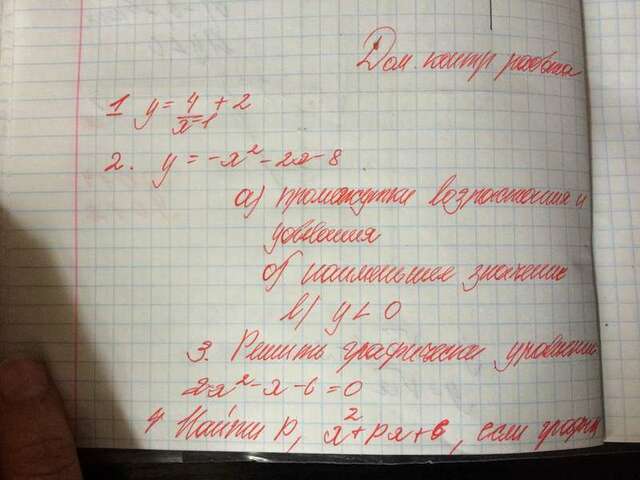 Дом. контр. работа
1 y = 4/(x-1) + 2
2. y = -x² - 2x - 8
а) промежутки возрастания и
убывания
б) наибольшее значение
в) y < 0
3 Решить графически уравнение
2x² - x - 6 = 0
4 Найти p, x² + px + 6, если